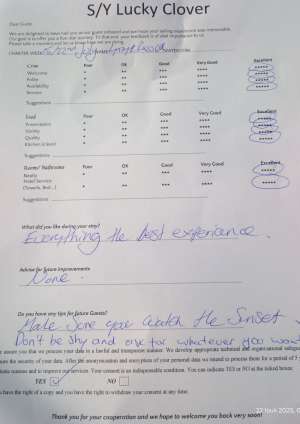 S/Y Lucky Clover
Dear Guest
We are delighted to have had you on our guest onboard and we hope your sailing experience was memorable.
Please take a moment and let us know how we are doing.
CHARTER WEEK:
Crew Poor OK Good Very Good Excellent
Welcome * ** *** **** *****
Polite * ** *** **** *****
Availability * ** *** **** *****
Service * ** *** **** *****
Suggestions
Food Poor OK Good Very Good Excellent
Presentation * ** *** **** *****
Variety * ** *** **** *****
Quality * ** *** **** *****
* ** *** **** *****
Suggestions
Rooms/ Bathrooms Poor OK Good Very Good Excellent
* ** *** **** *****
Hotel Service
(Towels, Bed...) * ** *** **** *****
Suggestions
What did you like during your stay?
Everything the best experience.
Advise for future improvements
None.
Do you have any tips for future Guests?
Make sure you watch the Sunset
Don't be shy and ask for whatever you want
assure you that we process your data in a lawful and transparent manner. We develop appropriate technical and organizational safeguards
the security of your data. After the anonymization and erasure of your personal data we intend to process them for a period of 5
business and to improve our services. Your consent is an indispensable condition. You can indicate YES or NO at the ticked boxes:
YES NO
have the right of a copy and you have the right to withdraw your consent at any time.
Thank you for your cooperation and we hope to welcome you back very soon!